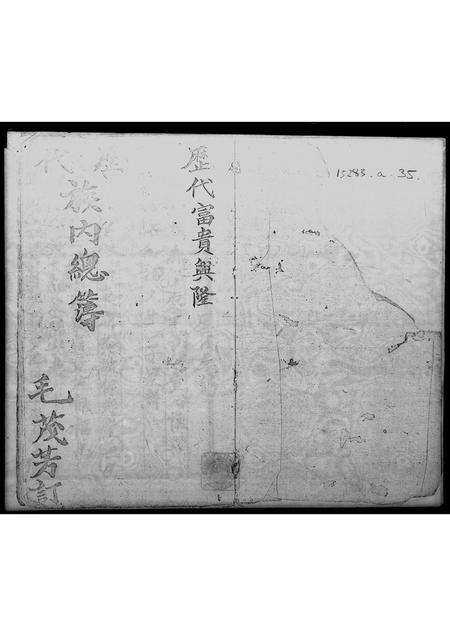 15283. a. 35.
歷代富貴興隆
歷代
族內總簿
毛茂芳訂